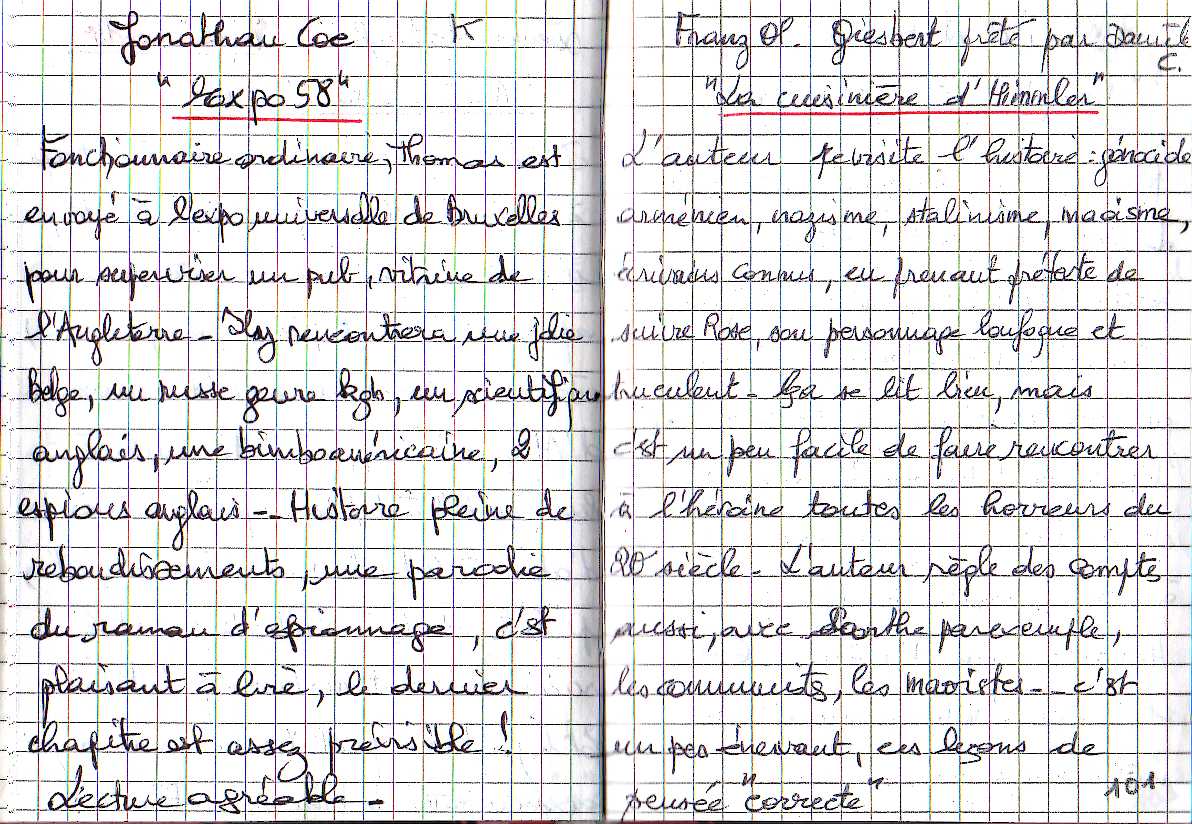 Jonathan Coe K
"Expo 58"
Fonctionnaire ordinaire, Thomas est
envoyé à l'expo universelle de Bruxelles
pour superviser un pub, vitrine de
l'Angleterre - Il y rencontrera une jolie
Belge, un russe genre kgb, un scientifique
anglais, une bimbo américaine, 2
espions anglais -- Histoire pleine de
rebondissements, une parodie
du roman d'espionnage, c'est
plaisant à lire, le dernier
chapitre est assez prévisible !
Lecture agréable -
Franz Ol. Giesbert prêté par Danièle
C.
"La cuisinière d'Himmler"
L'auteur revisite l'histoire : génocide
arménien, nazisme, stalinisme, maoisme,
écrivains connus, en prenant prétexte de
suivre Rose, son personnage loufoque et
truculent - Ça se lit bien, mais
c'est un peu facile de faire rencontrer
à l'héroïne toutes les horreurs du
20e siècle - L'auteur règle des comptes
aussi, avec Sarthe par exemple,
les communists, les maoistes -- c'est
un peu énervant, ces leçons de
pensée "correcte"
101